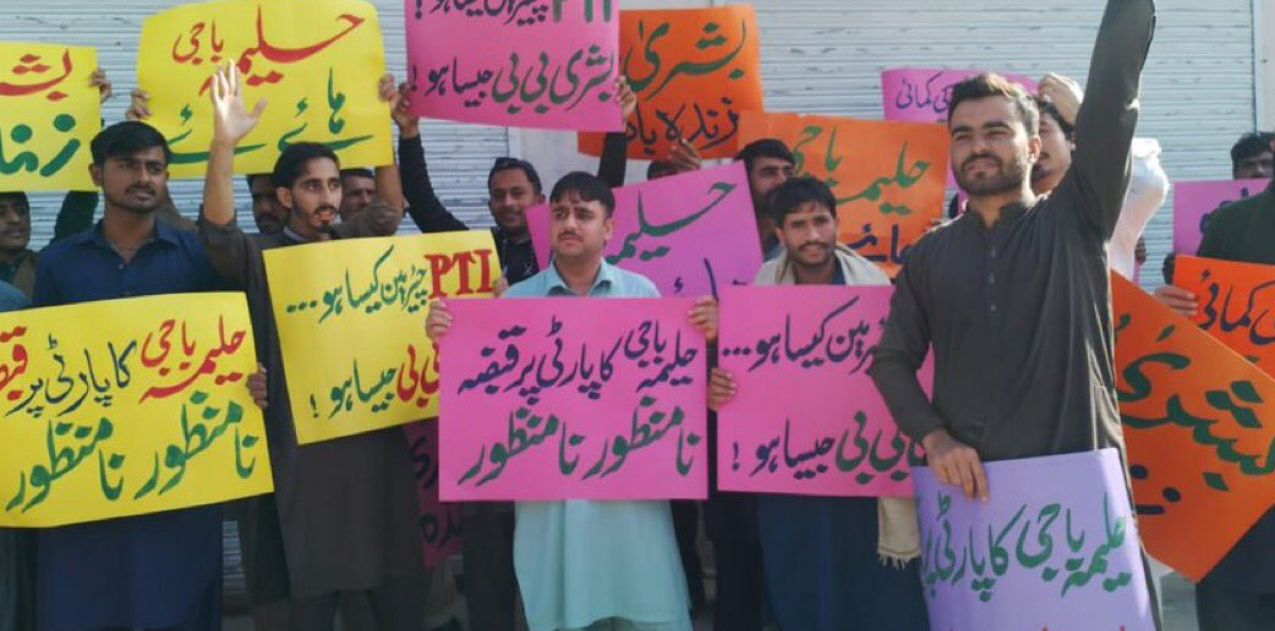 بشریٰ
زندہ
حلیمہ باجی
ہائے ہائے
PTI چیئرمین کیسا ہو
بشریٰ بی بی جیسا ہو !
بشریٰ
زندہ باد
کی کمائی
حلیمہ باجی
ہائے
حلیمہ
ہائے
PTI چیئرمین کیسا ہو...
بی بی جیسا ہو !
حلیمہ باجی کا پارٹی پر قبضہ
نامنظور نامنظور
حلیمہ باجی کا پارٹی پر قبضہ
نامنظور نامنظور
کیسا ہو...
بی بی جیسا ہو !
کمائی
حلیمہ باجی کا پارٹی پر